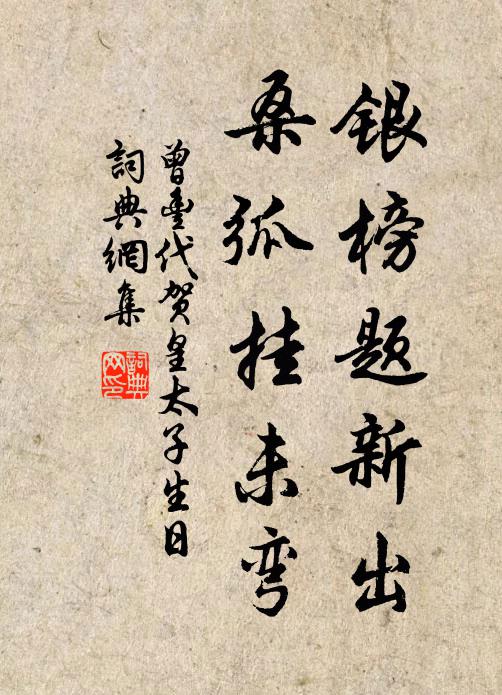 銀榜题新出
桑弧挂未弯
曾豊代贺皇太子生日
詞典網集
詞典网印